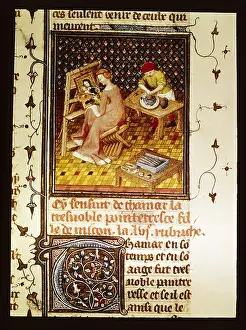 ces seulent venir de ceulx qui
meurent.
Cy sensuit de thamar la
tresnoble painteresse fil
le de micon. la lvj. rubriche.
Thamar en so
temps et en so
aage fut tres
noble paintre
resse et seil est
ainsi que le